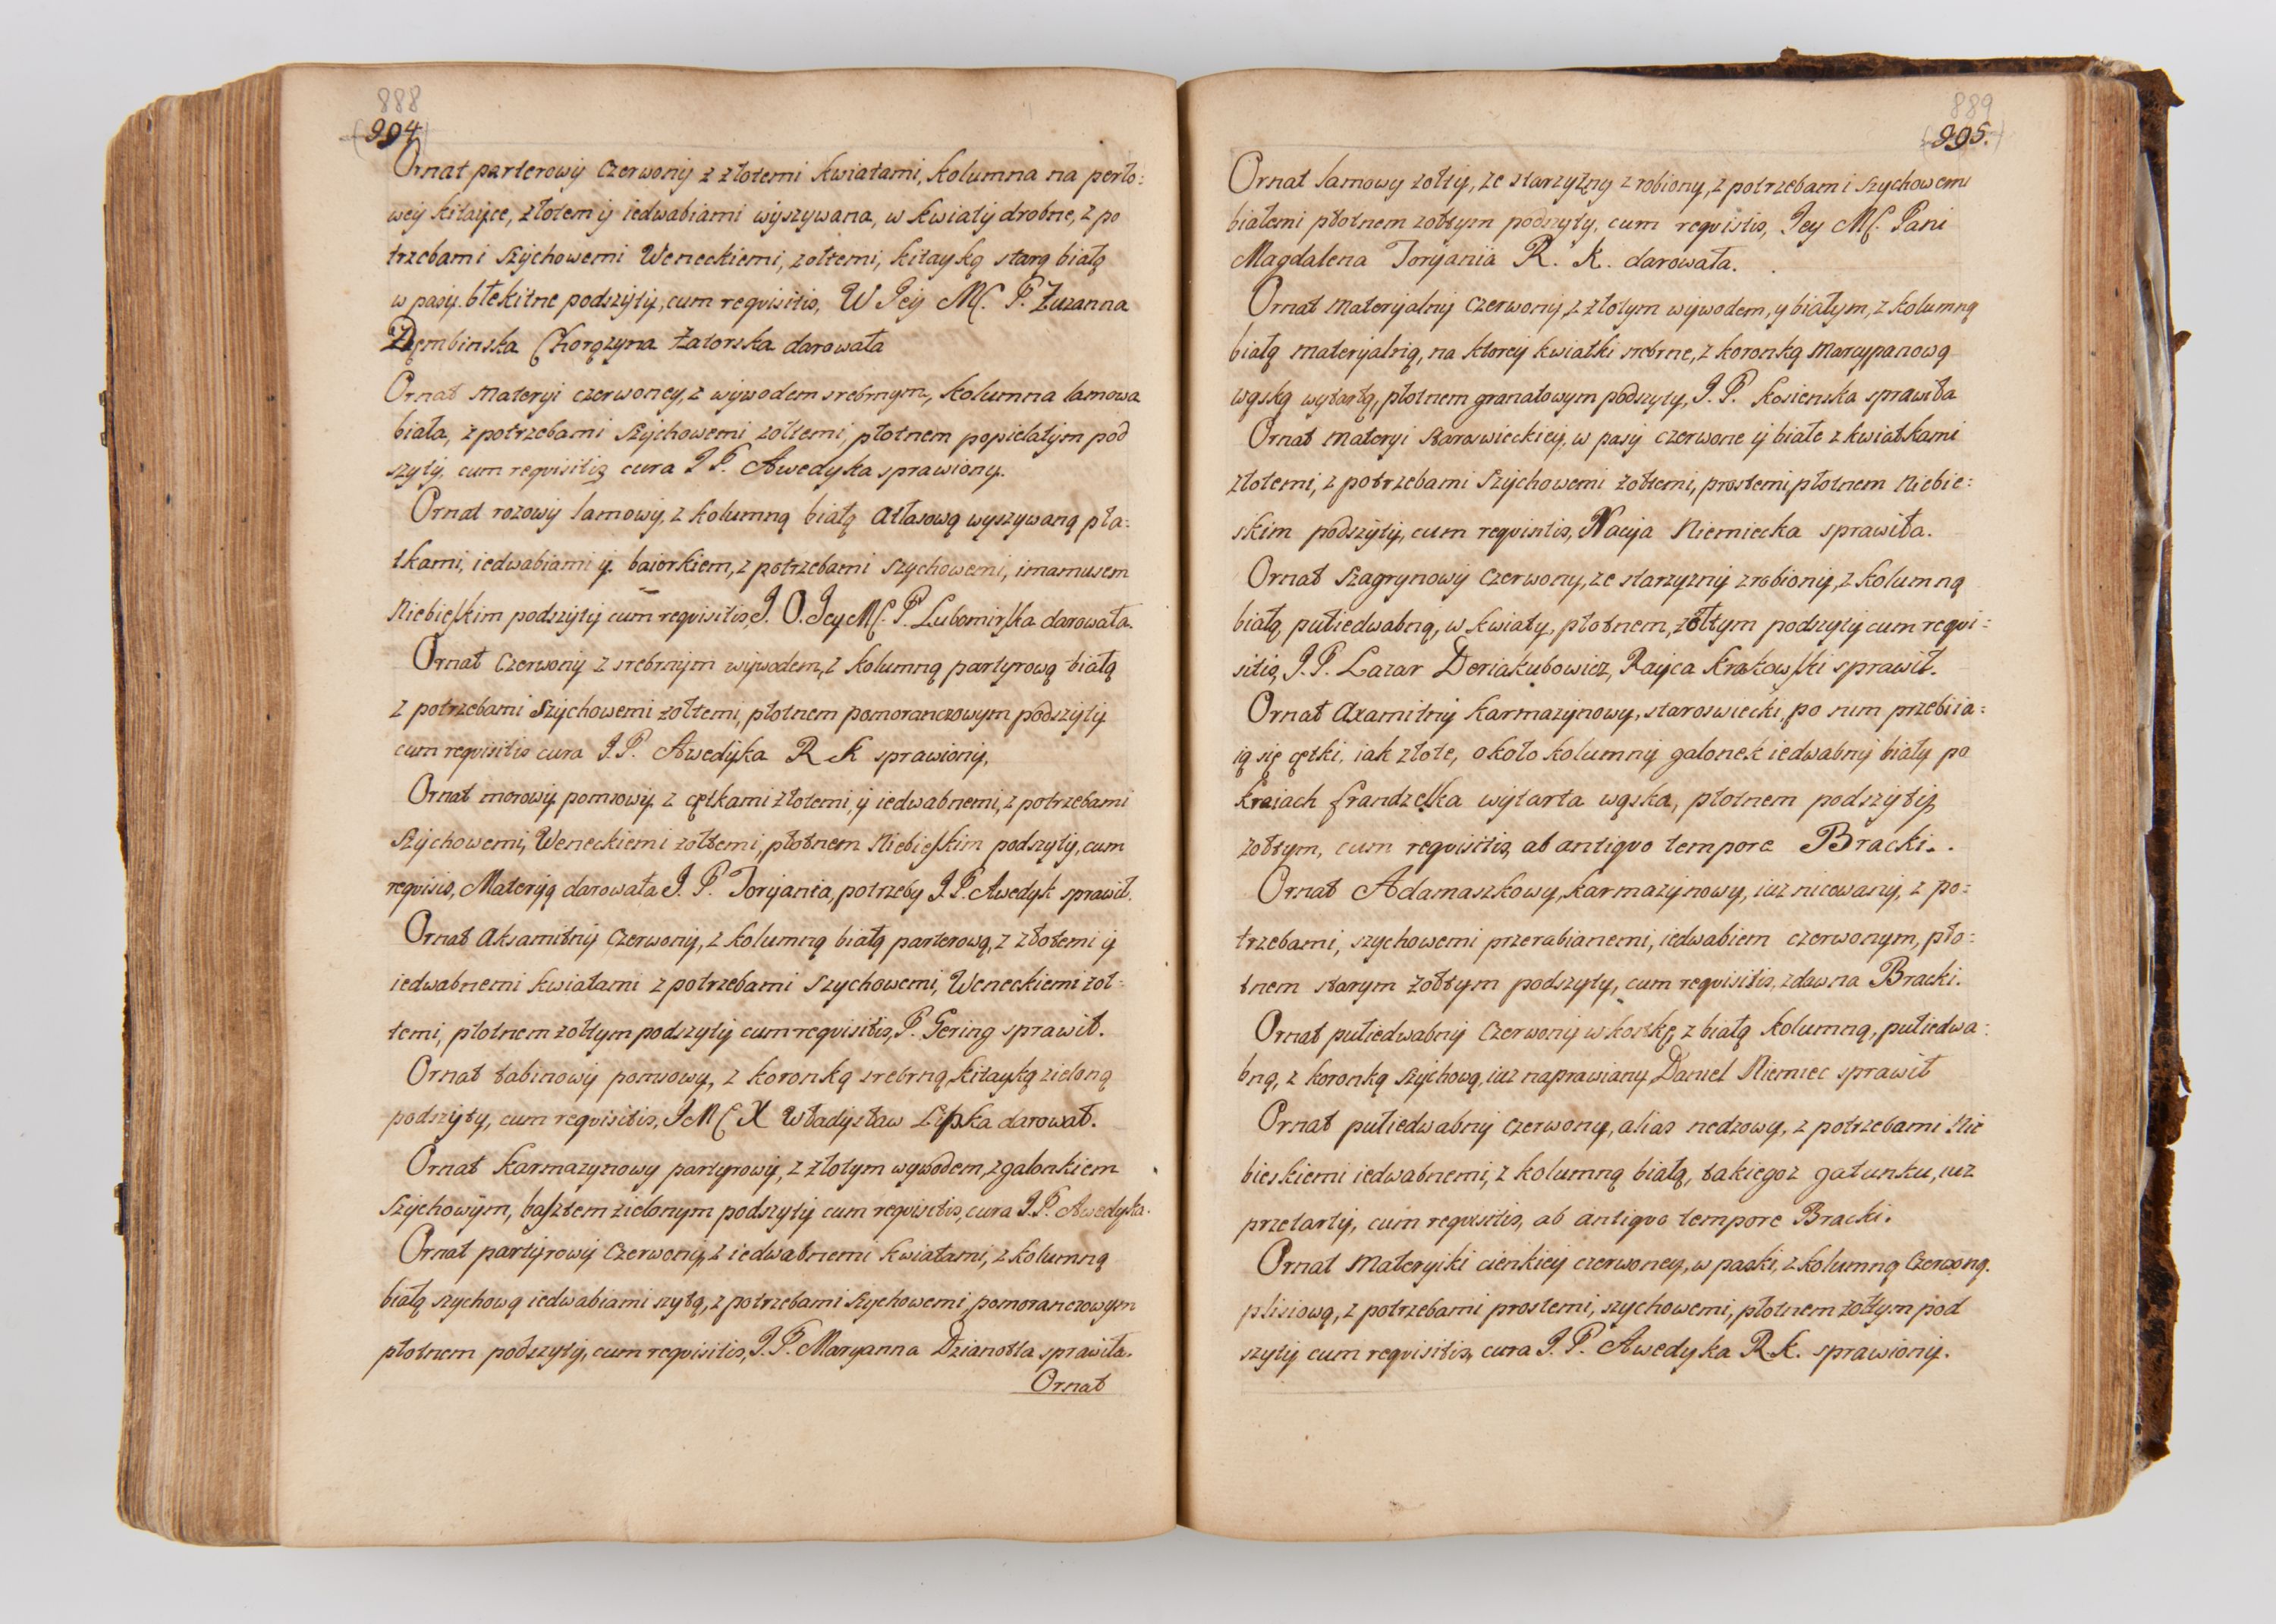 888
994
Ornat parterowÿ Czerwonÿ z złotemi kwiatami, kolumna na perło:
weÿ kitaÿce, złotem ÿ iedwabiami wÿszywana, w kwiatÿ drobne, z po
trzebami szÿchowemi Weneckiemi, zołtemi, kitayką starą białą
w pasÿ błekitne podszÿtÿ, cum reqvisitis, W Jeÿ MC. P. Zuzanna
Dęmbinska Chorązyna Zatorska darowała
Ornat materyi czerwoney, z wÿwodem srebrnym, kolumna lamowa
biała, z potrzebami szÿchowemi zołtemi, płotnem popielatÿm pod
szytÿ, cum reqvisitis cura J P. Awedyka sprawiony.
Ornat rozowÿ lamowÿ, z kolumną białą atłasową wyszywaną pła:
tkami, iedwabiami ÿ baiorkiem, z potrzebami szychowemi, imamusem
Niebieskim podszÿtÿ cum reqvisitis, J. O. Jey MC. P. Lubomirska darowała.
Ornat Czerwonÿ z srebrnÿm wÿwodem, z kolumną partyrową białą
z potrzebami Szÿchowemi zołtemi, płotnem pomoranczowym podszÿtÿ
cum reqvisitis cura J. P. Awedÿka R K sprawionÿ.
Ornat morowÿ ponsowÿ z cętkami złotemi, ÿ iedwabnemi, z potrzebami
szÿchowemi, Weneckiemi zołtemi, płotnem Niebieskim podszytÿ, cum
reqvisis, Materÿą darowała J. P. Torÿania, potrzeby J. P. Awedyk sprawił.
Ornat aksamitnÿ Czerwonÿ, z kolumną białą parterową, z złotemi ÿ
iedwabnemi kwiatami z potrzebami szychowemi, Weneckiemi zoł-
temi, płotnem zołtym podszytÿ cum reqvisitis, P. Gering sprawił.
Ornat tabinowÿ ponsowy, z koronką srebrną, kitayką zieloną
podszÿty, cum reqvisitis, J M C X Władÿsław Lipka darował.
Ornat karmazynowy partyrowÿ, z złotym wywodem, z galonkiem
szÿchowÿm, basztem zielonym podszytÿ cum reqvisitis, cura J. P. Awedyka.
Ornat partÿrowÿ Czerwonÿ, z iedwabnemi kwiatami, z kolumną
białą szychową iedwabiami szytą, z potrzebami szÿchowemi, pomoranczowym
płotnem podszyty, cum reqvisitis, J. P. Maryanna Dzianotta sprawiła.
Ornat
889
995.
Ornat lamowy zołty, ze starzyzny zrobiony, z potrzebami szychowemi
białemi płotnem zołtym podszyty, cum reqvistis, Jey MC. Pani
Magdalena Torÿania R. K. darowała.
Ornat materÿalnÿ Czerwonÿ, z złotym wÿwodem, y białym, z kolumną
białą materÿalną, na ktoreÿ kwiatki srebrne, z koronką marcypanową
wąską wytartą, płotnem granatowym podszyty, J. P. Kosienska sprawiła
Ornat materyi staroswieckieÿ, w pasÿ czerwone ÿ białe z kwiatkami
złotemi, z potrzebami szÿchowemi zołtemi, prostemi, płotnem Niebie:
skim podszÿtÿ, cum reqvisitis, Nacija Niemiecka sprawiła.
Ornat Szagrynowÿ czerwony, ze starzyznÿ zrobionÿ, z kolumną
białą, pułiedwabną, w kwiaty, płotnem, zołtym podszytÿ cum reqvi:
sitis, J. P. Lazar Deriakubowicz, Raÿca Krakowski sprawił.
Ornat axamitnÿ karmazÿnowy, staroswiecki, po nim przebiia:
ią się cętki, iak złote, około kolumnÿ galonek iedwabnÿ biały po
kraiach frandzelka wÿtarta wąska, płotnem podszÿtÿ,
zołtym, cum reqvisitis, ab antiqvo tempore Bracki.
Ornat Adamaszkowy, karmazÿnowy, iuz nicowanÿ, z po:
trzebami, szychowemi przerabianemi, iedwabiem czerwonym, pło:
tnem starym zołtym podszyty, cum reqvisitis, zdawna Bracki.
Ornat pułiedwabnÿ Czerwonÿ w kostkę, z białą kolumną, pułiedwa:
bną, z koronką szÿchową, iuz naprawiany, Daniel Niemiec sprawił
Ornat pułiedwabnÿ czerwony, alias nedzowy, z potrzebami Nie
bieskiemi iedwabnemi, z kolumną białą, takiegoz gatunku, iuz
przetartÿ, cum reqvisitis, ab antiqvo tempore Bracki.
Ornat materyiki cienkieÿ czerwoney, w paski, z kolumną Czerwoną.
plisiową, z potrzebami prostemi, szychowemi, płotnem zołtym pod
szytÿ cum reqvisitis, cura J. P. Awedyka R. K. sprawionÿ.